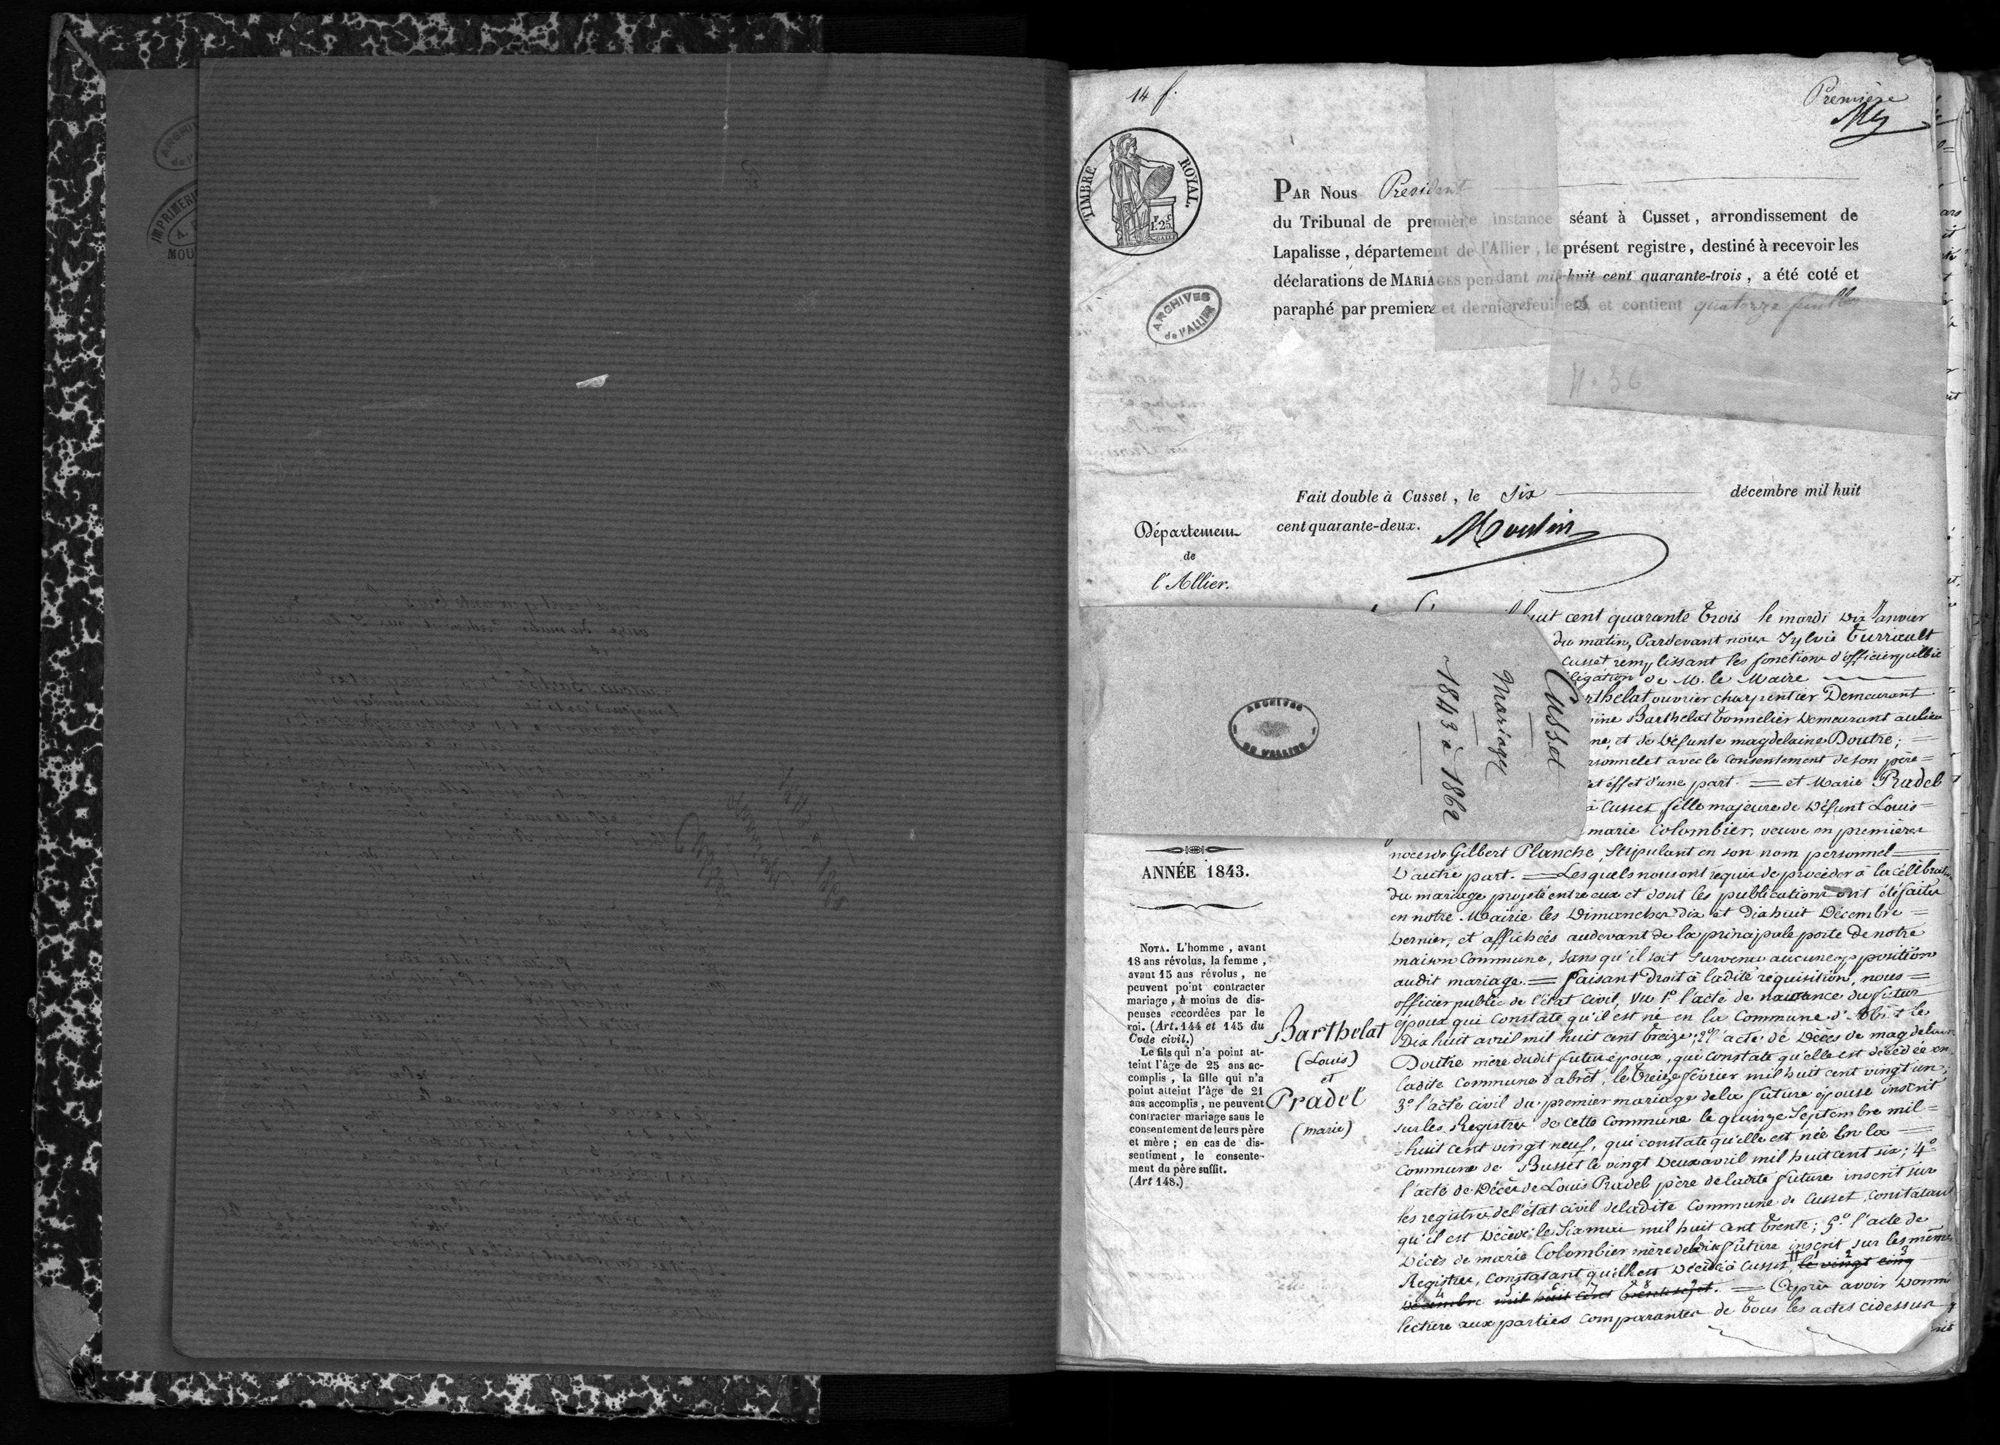 14 f.
Première
TIMBRE ROYAL.
ARCHIVES
de l'ALLIER
PAR NOUS Président
du Tribunal de première instance séant à Cusset, arrondissement de
Lapalisse, département de l'Allier, le présent registre, destiné à recevoir les
déclarations de MARIAGES pendant mil-huit cent quarante-trois, a été coté et
paraphé par premiere et derniere feuilles, et contient quatorze feuilles
N. 36
Fait double à Cusset, le Six décembre mil huit
cent quarante-deux. Moulin
Département
de
l'Allier.
Cusset
Mariages
1843 à 1862
ARCHIVES
DE L'ALLIER
huit cent quarante trois le mardi dix Janvier
du matin, Pardevant nous Sylvie Turriault
Cusset remplissant les fonctions d'officier public
délégation de M. le Maire
Barthelat ouvrier charpentier Demeurant
Barthelat tonnelier demeurant au lieu
et de défunte magdelaine Doutre;
personnel et avec le consentement de son père
et effet d'une part. = et Marie Pradel
à Cusset fille majeure de défunt Louis
marie Colombier, veuve en premières
noces de Gilbert Planche, stipulant en son nom personnel
D'autre part. = Lesquels nous ont requis de procéder à la célébration
du mariage projeté entre eux et dont les publications ont été faites
en notre Mairie les Dimanches dix et dix huit Décembre
dernier, et affichées audevant de la principale porte de notre
maison Commune, sans qu'il soit survenu aucune opposition
audit mariage. = faisant Droit à ladite réquisition, nous
officier public de l'état civil, vu 1º l'acte de naissance du futur
époux qui constate qu'il est né en la Commune d'Abrêt le
Dix huit avril mil huit cent treize; 2º l'acte de Décès de magdelaine
Doutre mère dudit futur époux, qui constate qu'elle est décédée en
ladite Commune d'abrêt, le treize février mil huit cent vingt un;
3º l'acte civil du premier mariage de la future épouse inscrit
sur les Registres de cette Commune le quinze Septembre mil
huit cent vingt neuf, qui constate qu'elle est née En la
Commune de Busset le vingt Deux avril mil huit cent six; 4º
l'acte de Décès de Louis Pradel père de ladite future inscrit sur
les registres de l'état civil de ladite Commune de Cusset, constatant
qu'il est Décédé le Six mai mil huit cent trente; 5º l'acte de
Décès de marie Colombier mère de ladite future inscrit sur les mêmes
Registres, constatant qu'elle est Décédée à Cusset, le vingt cinq
décembre mil huit cent trente sept. = Après avoir donné
lecture aux parties comparantes de tous les actes cidessus
ANNÉE 1843.
NOTA. L'homme, avant
18 ans révolus, la femme,
avant 15 ans révolus, ne
peuvent point contracter
mariage, à moins de dis-
penses accordées par le
roi. (Art. 144 et 145 du
Code civil.)
Le fils qui n'a point at-
teint l'âge de 25 ans ac-
complis, la fille qui n'a
point atteint l'âge de 21
ans accomplis, ne peuvent
contracter mariage sans le
consentement de leurs père
et mère; en cas de dis-
sentiment, le consente-
ment du père suffit.
(Art 148.)
Barthelat
(Louis)
et
Pradel
(marie)